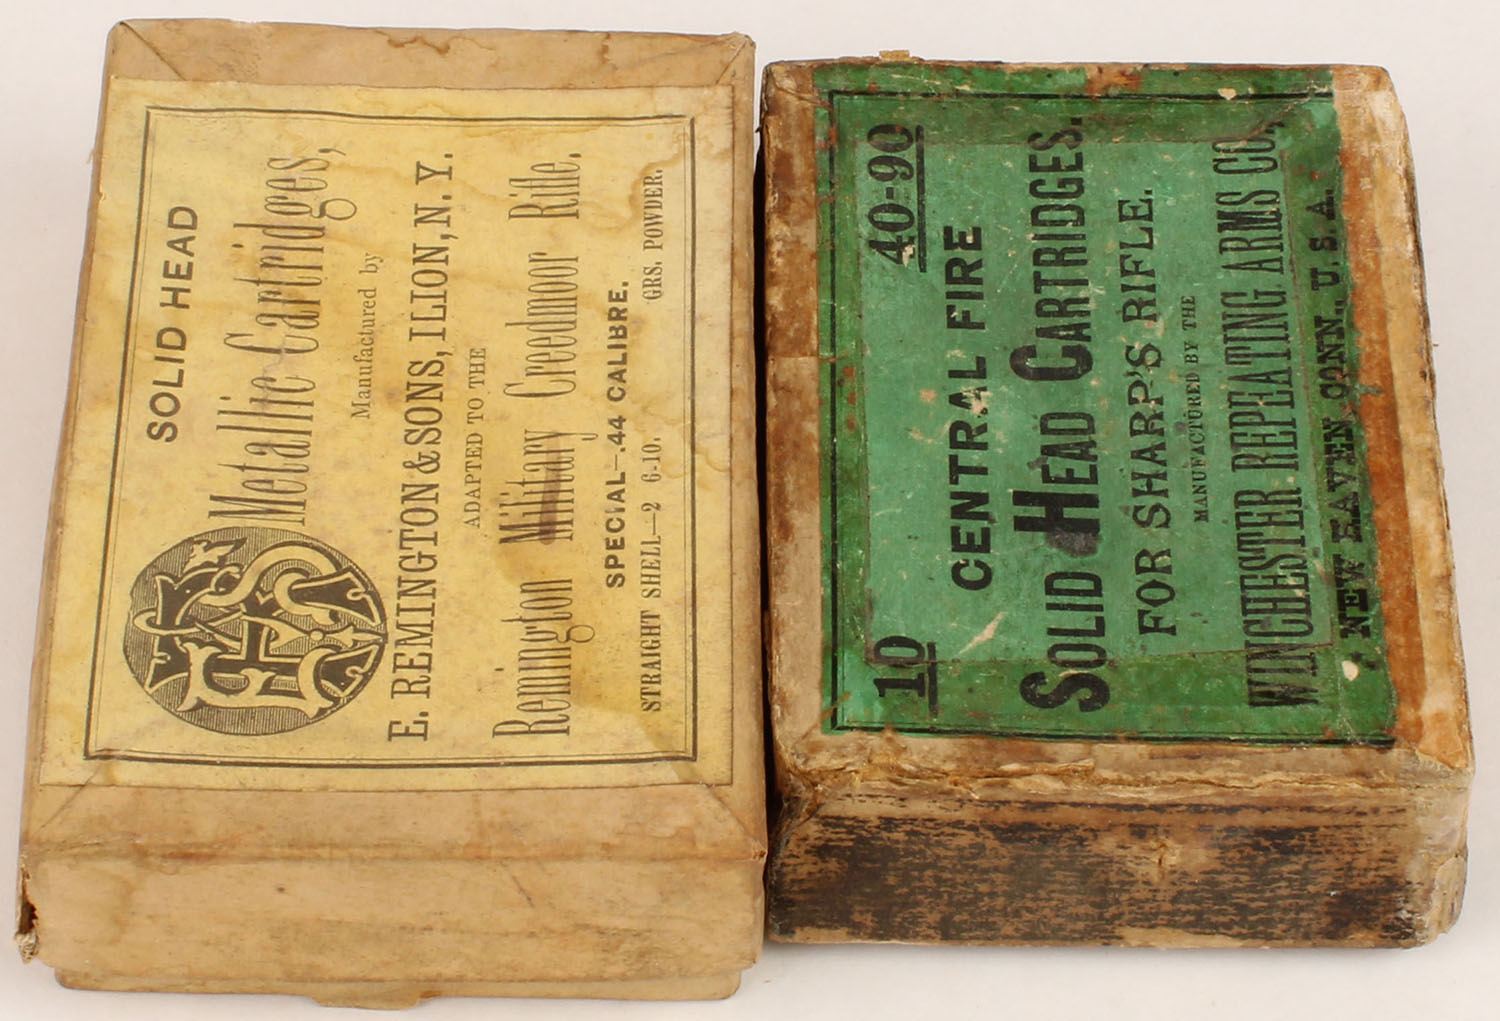 SOLID HEAD
Metallic Cartridges,
Manufactured by
E. REMINGTON & SONS, ILION, N. Y.
ADAPTED TO THE
Remington Military Creedmoor Rifle,
SPECIAL—.44 CALIBRE.
STRAIGHT SHELL—2 6-10. GRS. POWDER.
10 40-90
CENTRAL FIRE
SOLID HEAD CARTRIDGES.
FOR SHARP'S RIFLE.
MANUFACTURED BY THE
WINCHESTER REPEATING ARMS CO.,
NEW HAVEN CONN., U. S. A.